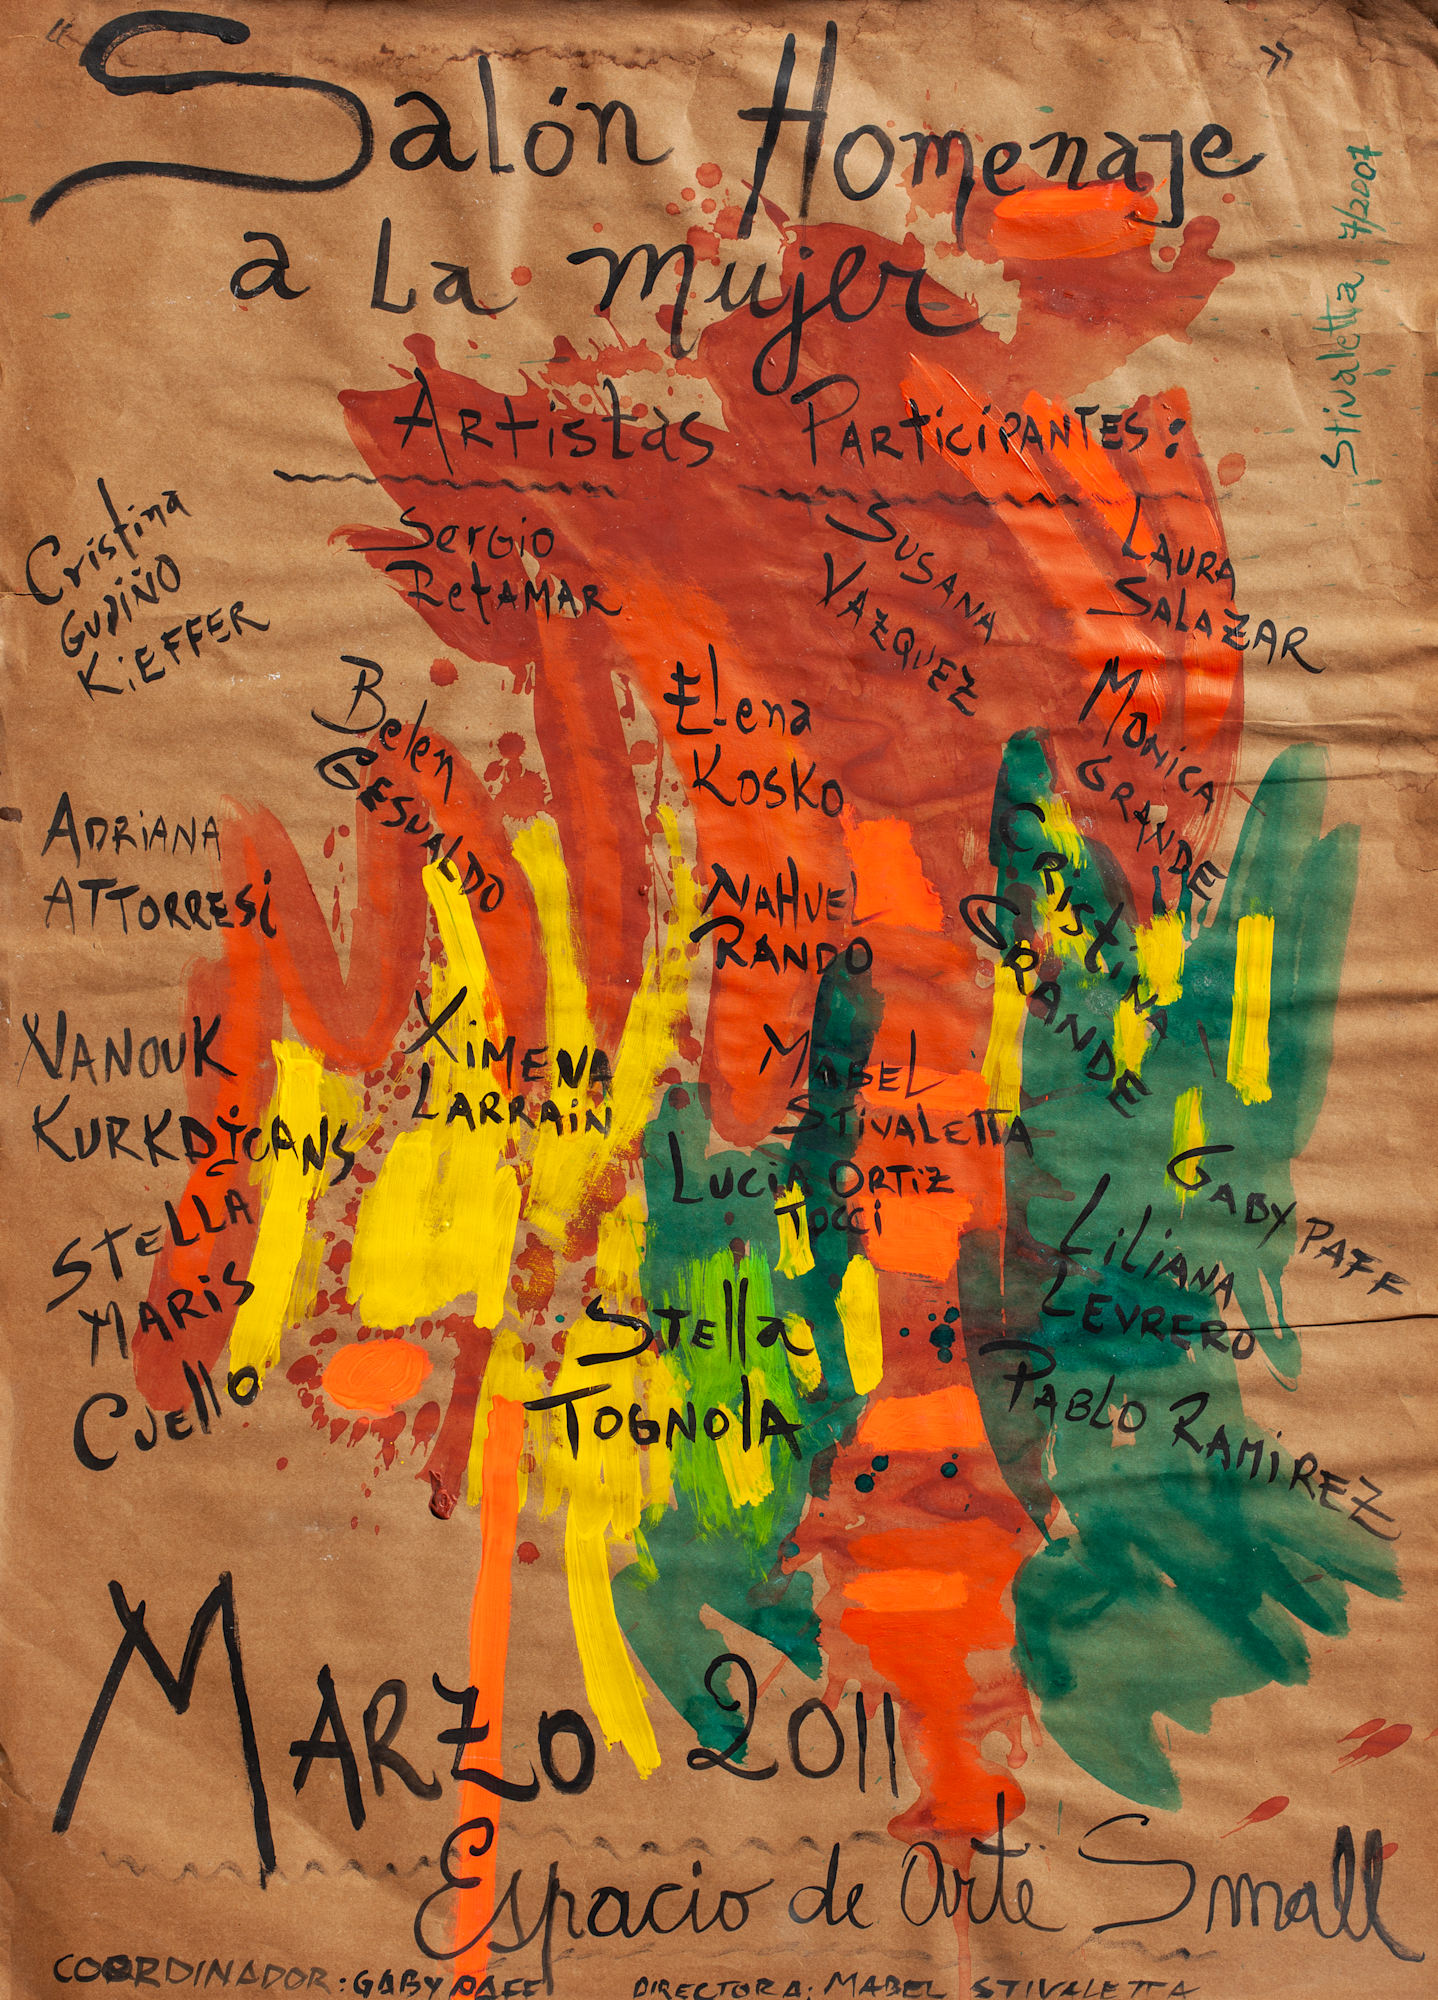 "Salón Homenaje"
a La mujer
Stivaletta 7/2007
Artistas Participantes:
Cristina
Gudiño
Kieffer
Sergio
Retamar
Susana
Vazquez
Laura
Salazar
Belen
Gesualdo
Elena
Kosko
Monica
Grande
Adriana
Attorresi
Nahuel
Rando
Cristina
Grande
Vanouk
Ximena
Larrain
Mabel
Stivaletta
Lucia Ortiz
Tocci
Gaby Paff
Stella
Maris
Cuello
Liliana
Levrero
Stella
Tognola
Pablo Ramirez
Marzo 2011
Espacio de Arte Small
COORDINADOR: GABY PAFF
DIRECTORA: MABEL STIVALETTA